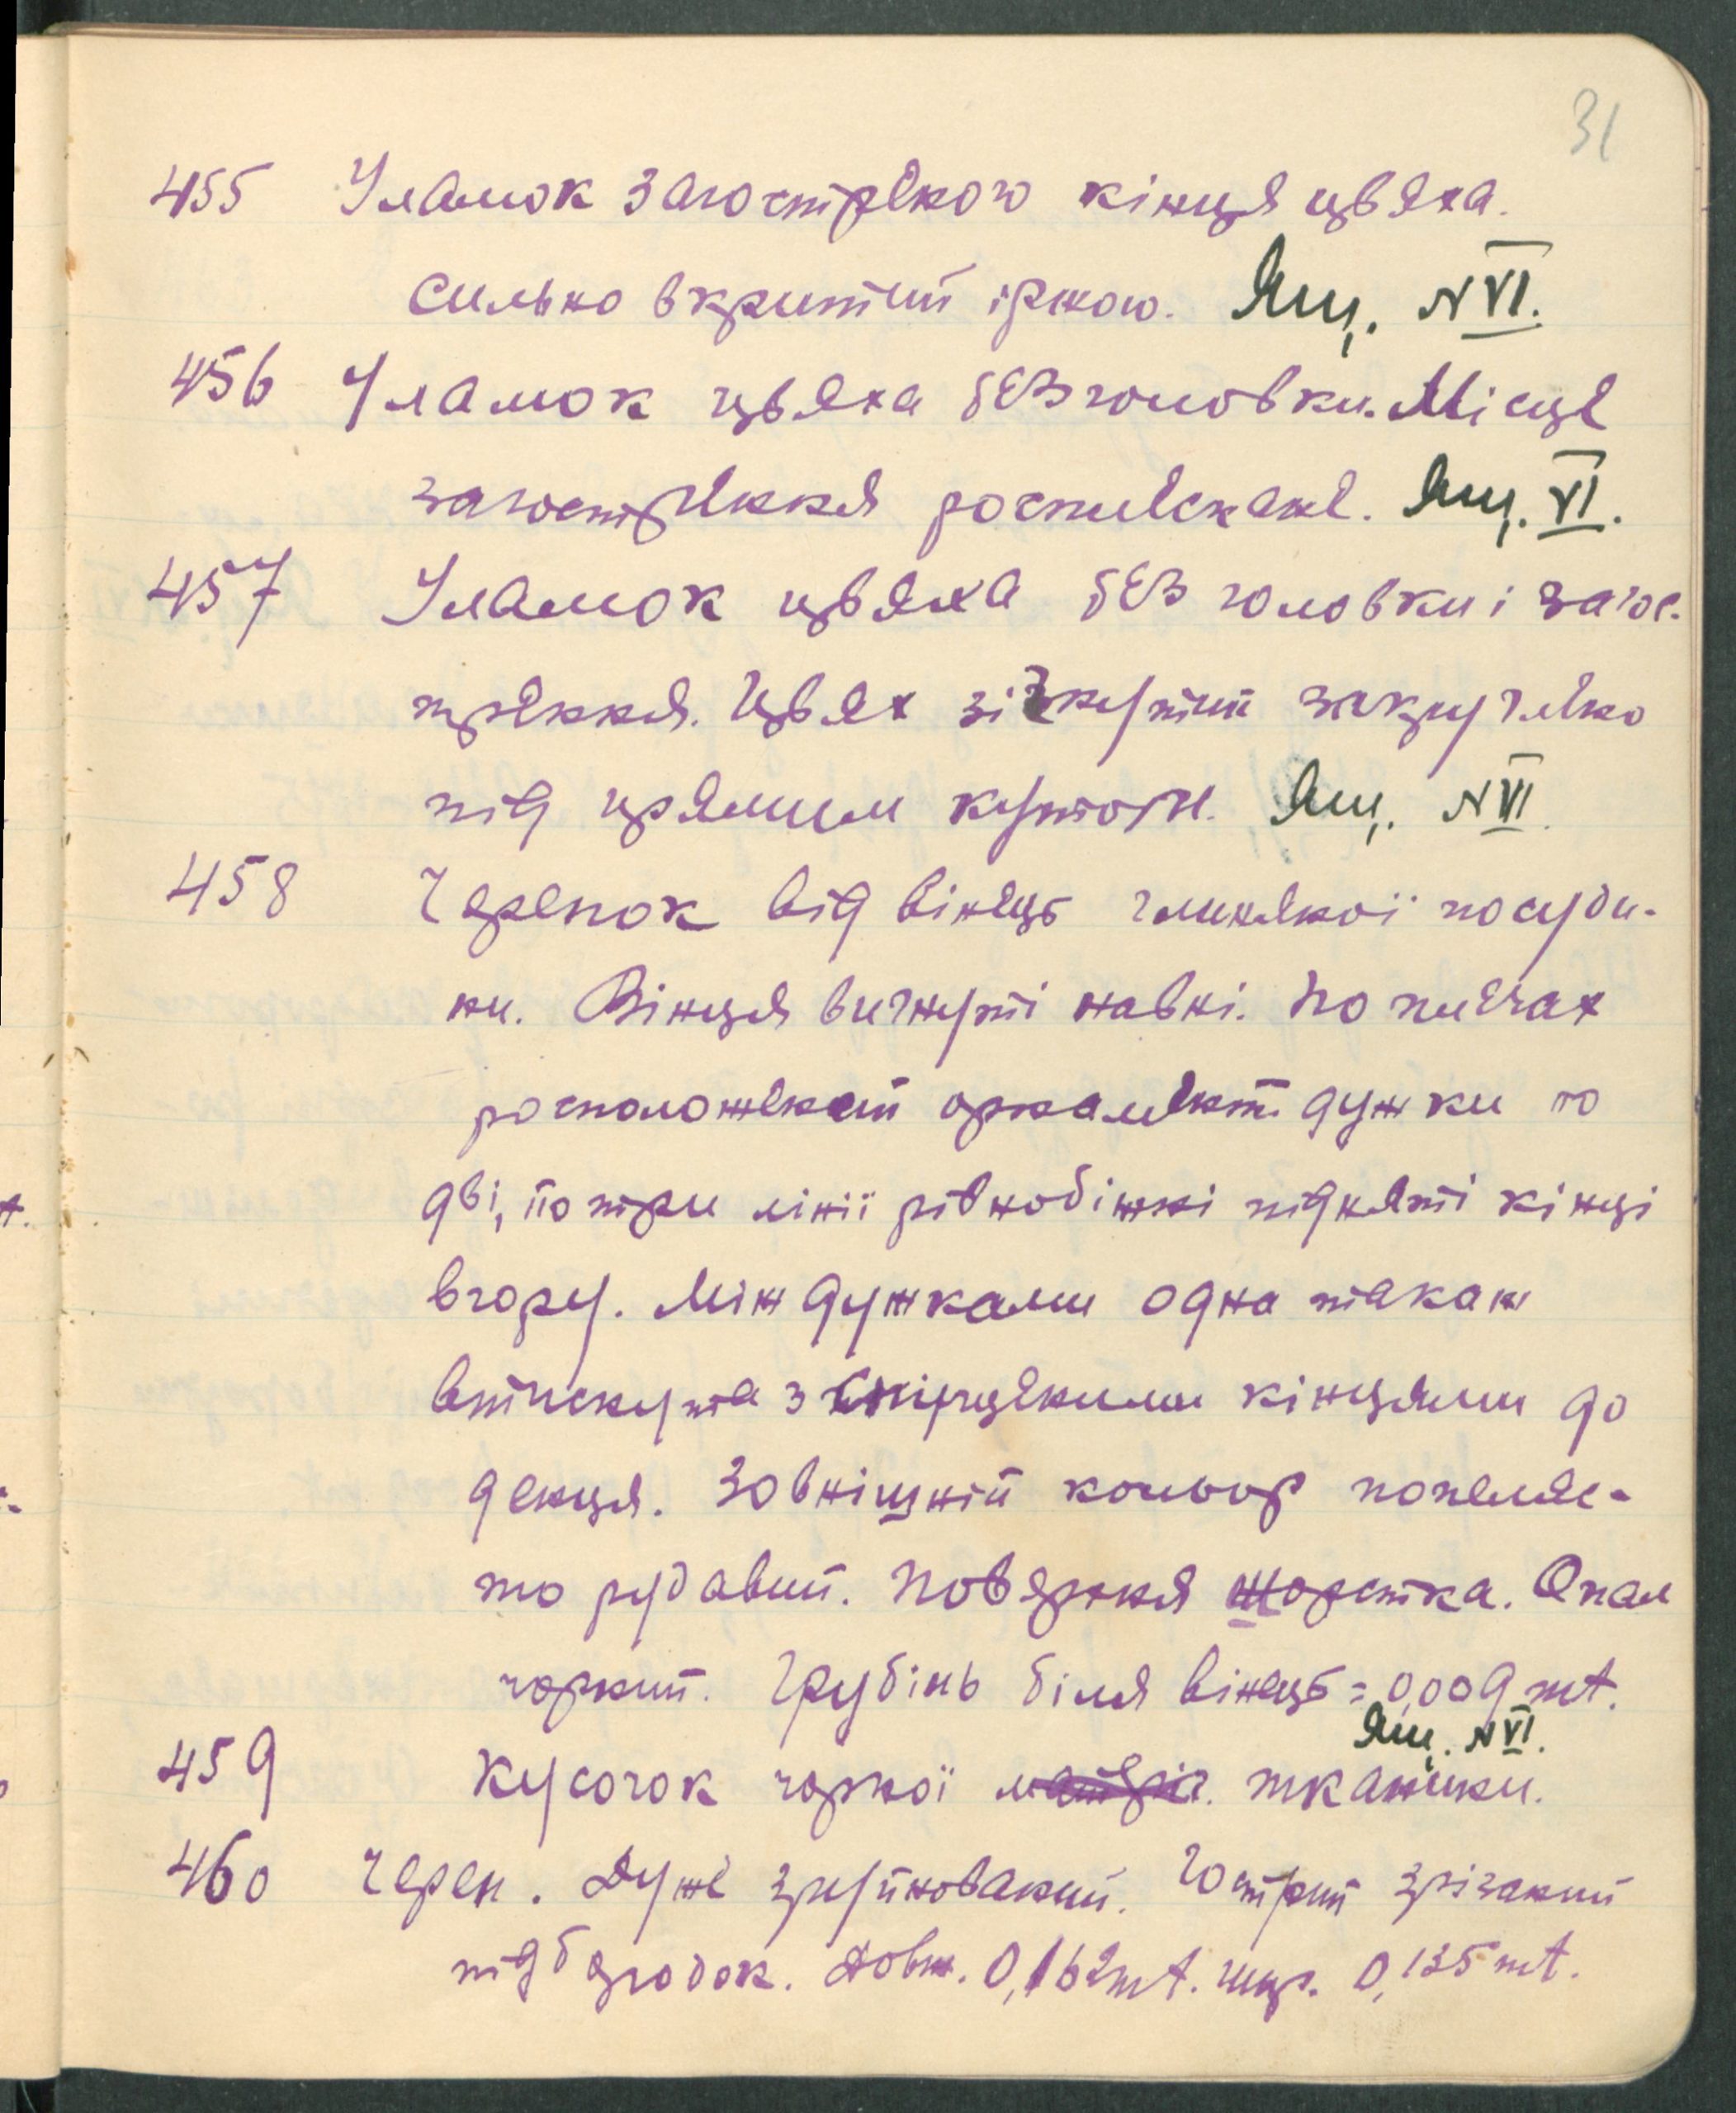 31
455 Уламок загостреного кінця цвяха.
сильно вкритий іржою. Ящ. N VI.
456 Уламок цвяха без головки. Місце
загострення росплескане. Ящ. VI.
457 Уламок цвяха без головки і загос-
трення. Цвях зігнутий закруглено
під прямим кутом. Ящ. N VI.
458 Черепок від вінець глиняної посуди-
ни. Вінця вигнуті навні. По плечах
росположений орнамент дужки по
дві, по три лінії рівнобіжні підняті кінці
вгору. Між дужками одна такаж
втиснута з кінцями до
денця. Зовнішній кольор попеляс-
то рудавий. Поверхня шорстка. Опал
чорний. Грубінь біля вінець = 0,009 mt.
Ящ. N VI.
459 Кусочок чорної тканини.
460 Череп. Дуже зруйнований. Гострий зрізаний
підбородок. Довж. 0,162 mt. шир. 0,135 mt.